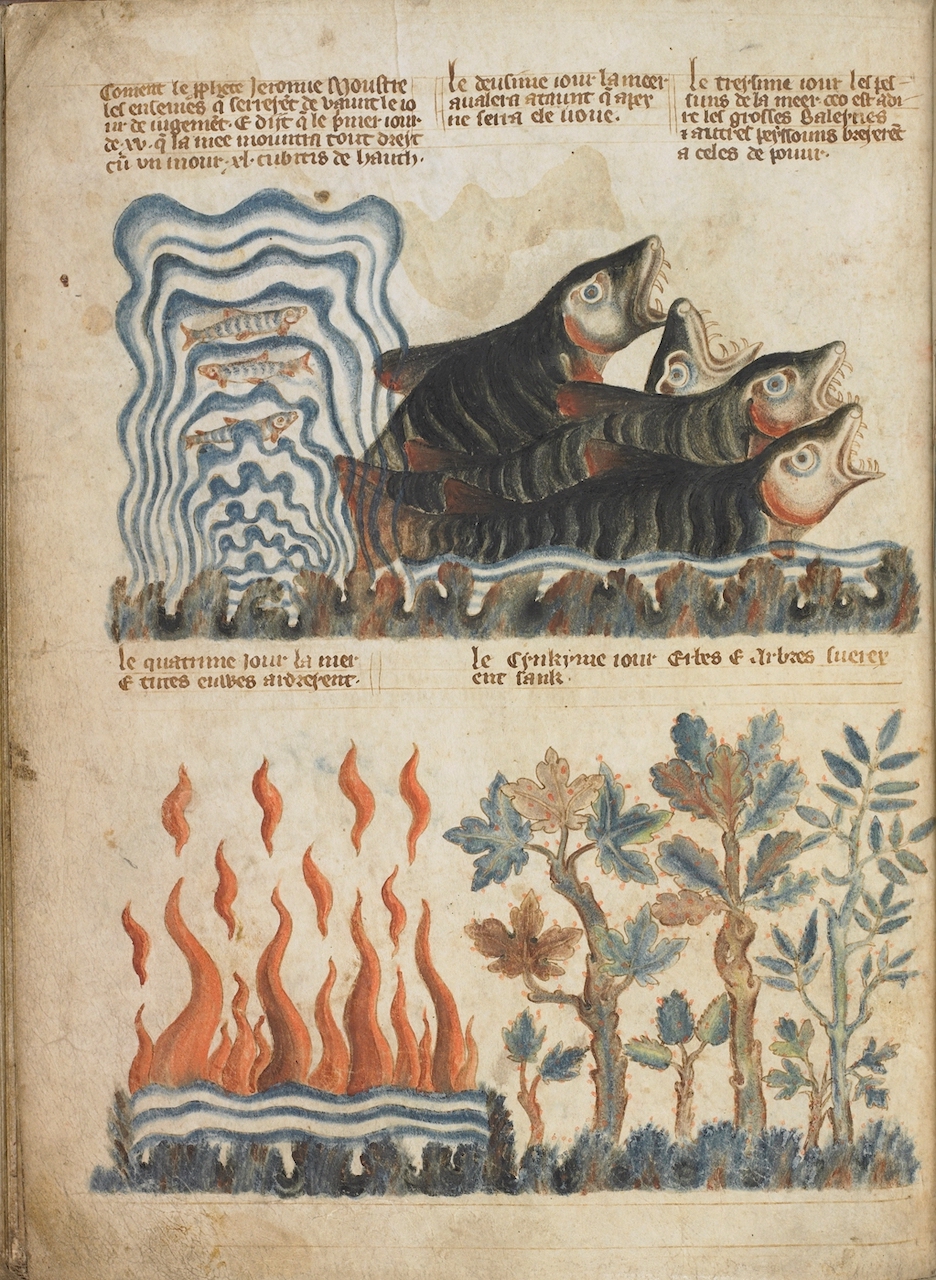 Coment le pphete Jeromie Moustre
les enseines q̃ serre̅t de vaunt le io
ur de iugeme̅t. E dist q̃ le p̃mer iour
de .xv. q̃ la mee mountra tout dreyt
cũ vn mour .xl. cubtis de hauth.
le deusime iour la meer
aualera ataunt q̃ apey
ne serra ele ueue.
le treysime iour les pes
suns de la meer. ceo est adi
re les grosses Baleynes
⁊ autres peyssouns bre͛
a celes de
le quatrime jour la mer
E tutes euwes arderent.
le Cynkyme iour Erbes E Arbres suerey
ent sank.